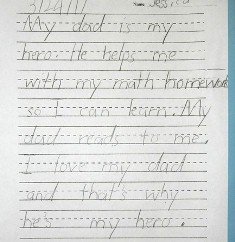 Jessica
My dad is my
hero. He helps me
with my math homework
so I can learn. My
dad reads to me.
I love my dad
and that's why
he's my hero.